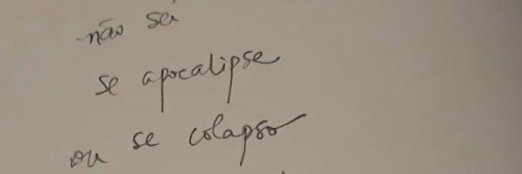 não sei
se apocalipse
ou se colapso